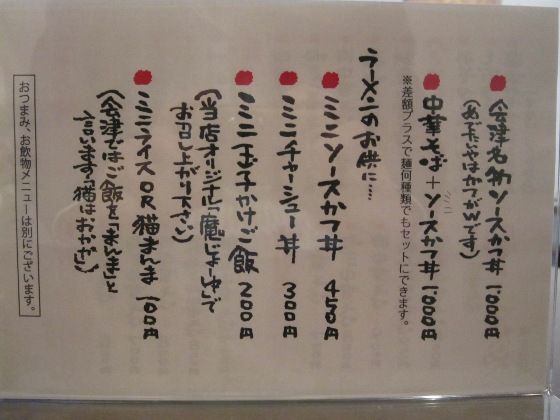 会津名物ソースかつ丼 1.000円
(めずらしやはかつがWです)
中華そば+ミニソースかつ丼 1.000円
※差額プラスで麺何種類でもセットにできます。
ラーメンのお供に……
ミニソースかつ丼 450円
ミニチャーシュー丼 300円
ミニ玉子かけご飯 200円
(当店オリジナル「魔じょーゆ」で
お召し上がり下さい)
ミニライスOR猫まんま 100円
(会津ではご飯を「まんま」と
言います。猫はおかか。)
おつまみ、お飲物メニューは別にございます。